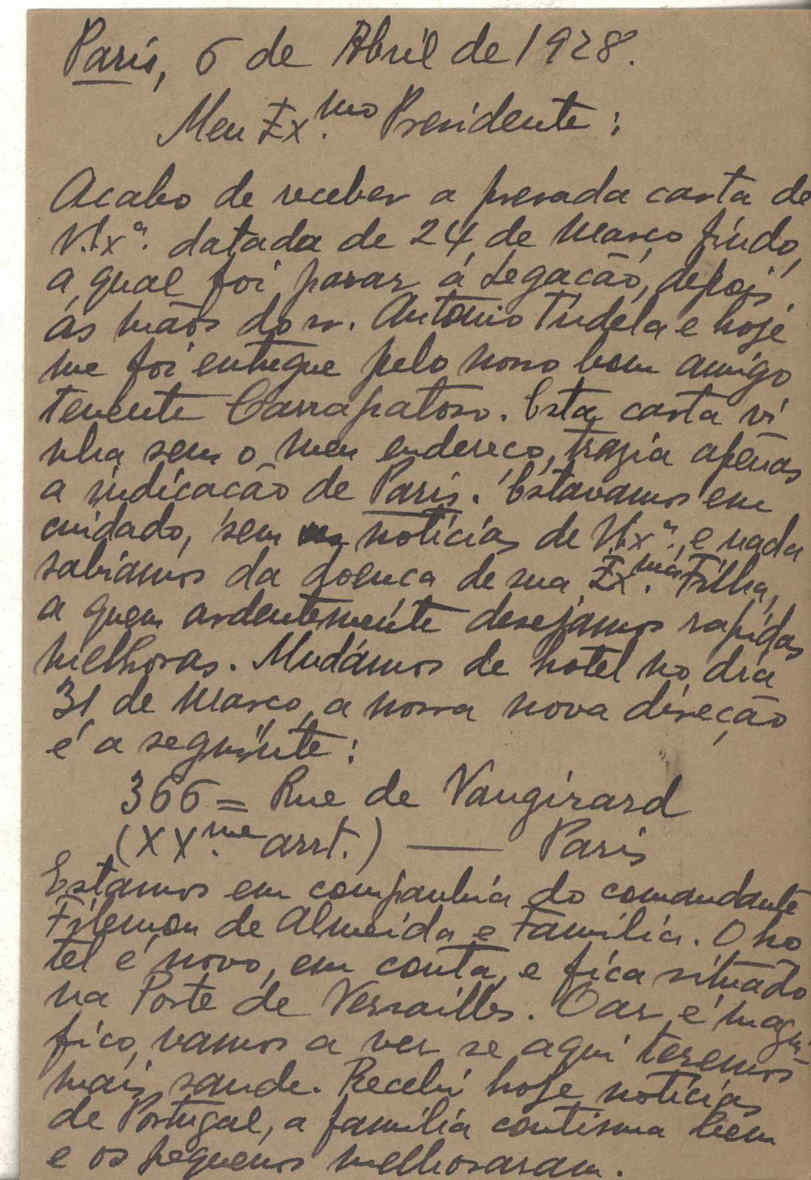 Paris, 6 de Abril de 1928.
Meu Ex.mo Presidente:
Acabo de receber a presada carta de
V. Ex.ª datada de 24 de Março findo,
a qual foi parar á Legação, depois
ás mãos do sr. Antonio Tudela e hoje
me foi entregue pelo nosso bom amigo
tenente Carrapatoso. Esta carta vi
nha sem o meu endereço, trazia apenas
a indicação de Paris. Estavamos em
cuidado, sem noticias de V. Ex.ª, e nada
sabiamos da doença de sua Ex.ma Filha,
a quem ardentemente desejamos rapidas
melhoras. Mudámos de hotel no dia
31 de Março, a nossa nova direção
é a seguinte:
366 = Rue de Vaugirard
(XX.me arrt.) — Paris
Estamos em companhia do comandante
Filemon de Almeida e Familia. O ho
tel é novo, em conta, e fica situado
na Porte de Versailles. O ar é magni
fico, vamos a ver se aqui teremos
mais saude. Recebi hoje noticias
de Portugal, a familia continua bem
e os pequenos melhoraram.